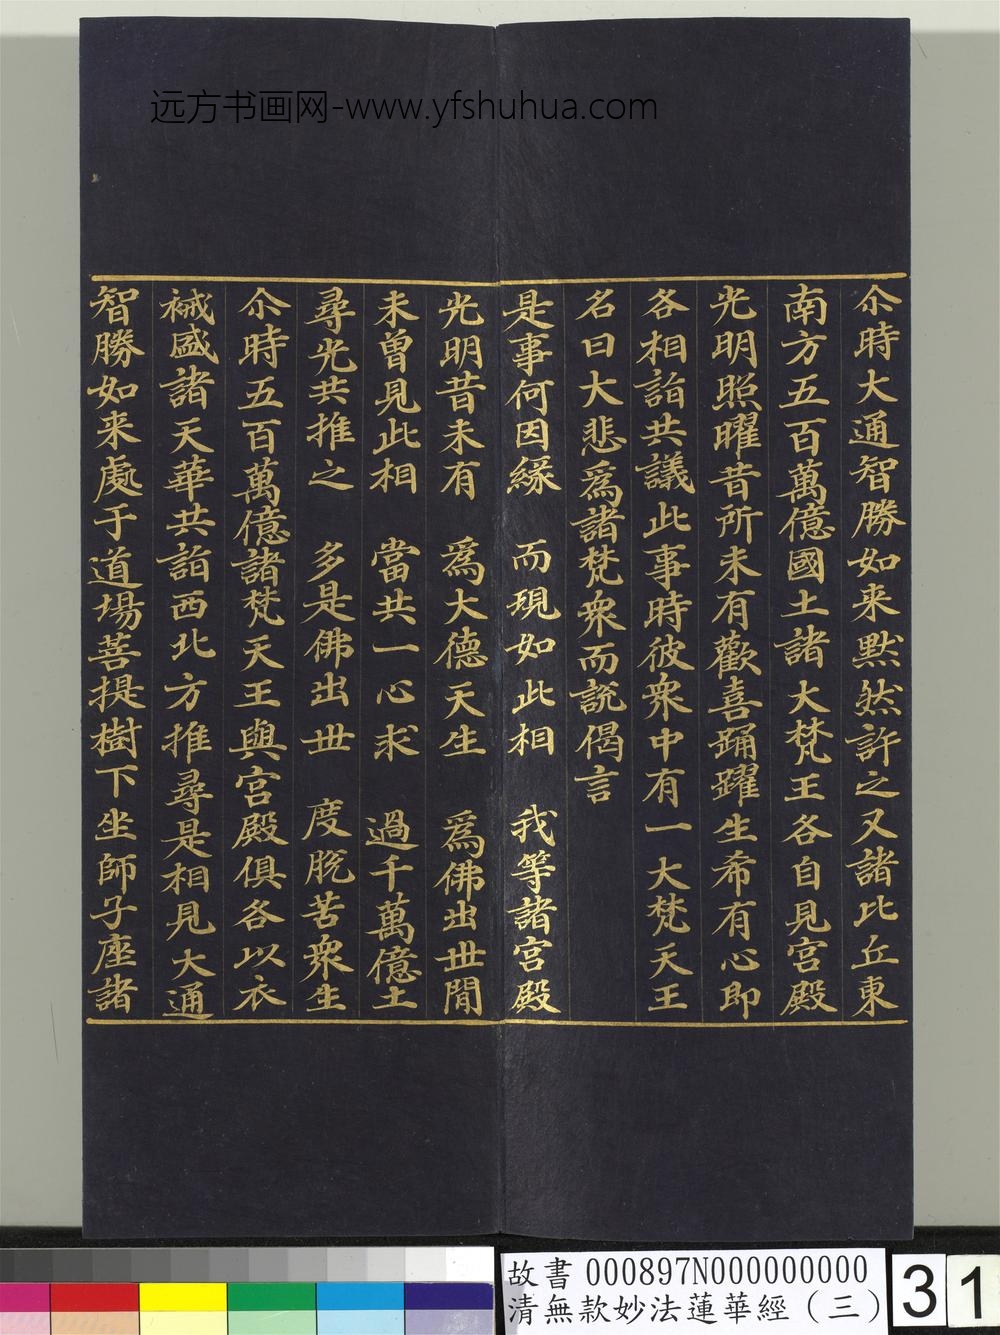 远方书画网-www.yfshuhua.com
尒時大通智勝如来黙然許之又諸比丘東
南方五百萬億國土諸大梵王各自見宫殿
光明照曜昔所未有歡喜踊躍生希有心即
各相詣共議此事時彼衆中有一大梵天王
名曰大悲爲諸梵衆而說偈言
是事何因緣　而現如此相　我等諸宫殿
光明昔未有　爲大德天生　爲佛出世間
未曾見此相　當共一心求　過千萬億土
尋光共推之　多是佛出世　度脫苦衆生
尒時五百萬億諸梵天王與宫殿俱各以衣
祴盛諸天華共詣西北方推尋是相見大通
智勝如来處于道場菩提樹下坐師子座諸
故書 000897N000000000
清無款妙法蓮華經（三）
31